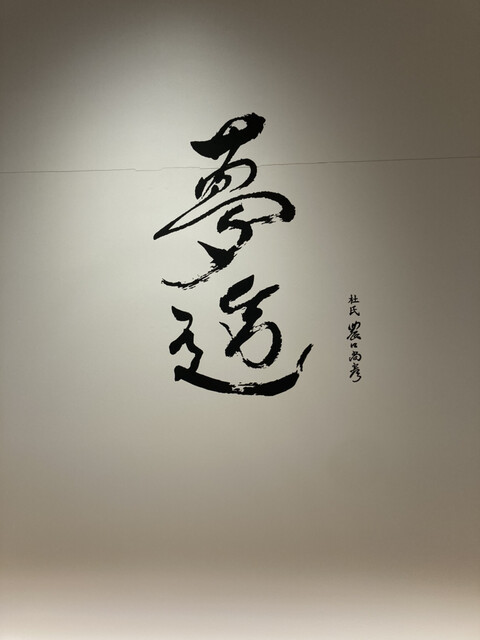 夢追
杜氏 農口尚彦